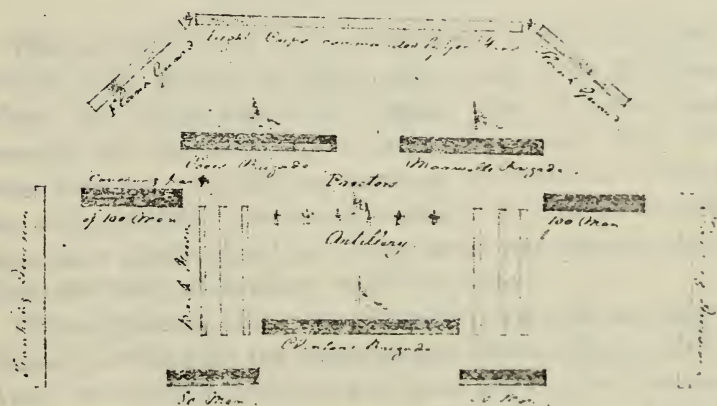 Light Corps commanded by Gen Hand
Flank Guard
Flank Guard
Poors Brigade
Maxwells Brigade
Covering
of 100 Men
Proctors
100 Men
Artillery
Pack Horses
Flanking Division
Clintons Brigade
50 Men
50 Men